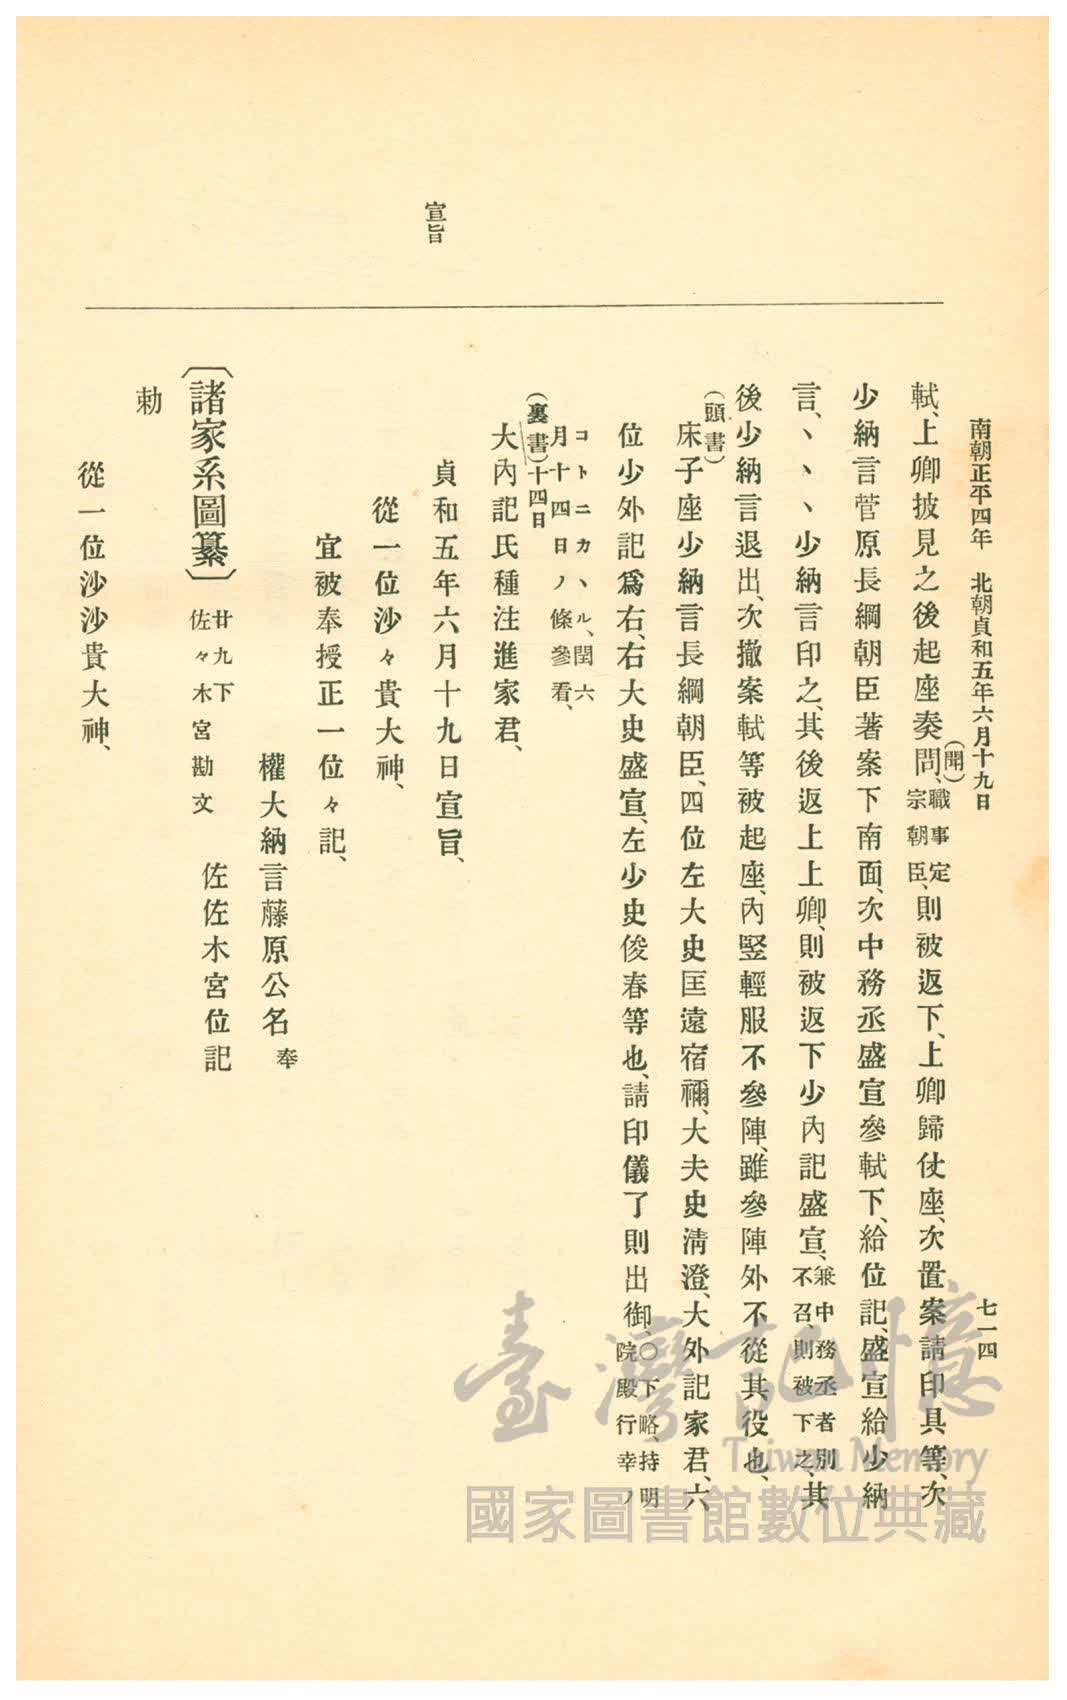 南朝正平四年　北朝貞和五年六月十九日
七一四
軾、上卿披見之後起座奏問、(聞)職事定宗朝臣、則被返下、上卿歸仗座、次置案請印具等、次
少納言菅原長綱朝臣著案下南面、次中務丞盛宣參軾下、給位記、盛宣給少納
言、丶丶丶少納言印之、其後返上上卿、則被返下少內記盛宣、兼中務丞者別不召、則被下之、其
後少納言退出、次撤案軾等被起座、內豎輕服不參陣、雖參陣外不從其役也、
(頭書)
床子座少納言長綱朝臣、四位左大史匡遠宿禰、大夫史淸澄、大外記家君、六
位少外記爲右、右大史盛宣、左少史俊春等也、請印儀了則出御、〇下略、持明院殿行幸ノ
コトニカヽル、閏六月十四日ノ條參看、
(裏書)十四日
大內記氏種注進家君、
宣旨
貞和五年六月十九日宣旨、
從一位沙々貴大神、
宜被奉授正一位々記、
權大納言藤原公名奉
〔諸家系圖纂〕廿九下佐々木宮勘文　佐佐木宮位記
勅
從一位沙沙貴大神、
臺灣記憶
Taiwan Memory
國家圖書館數位典藏